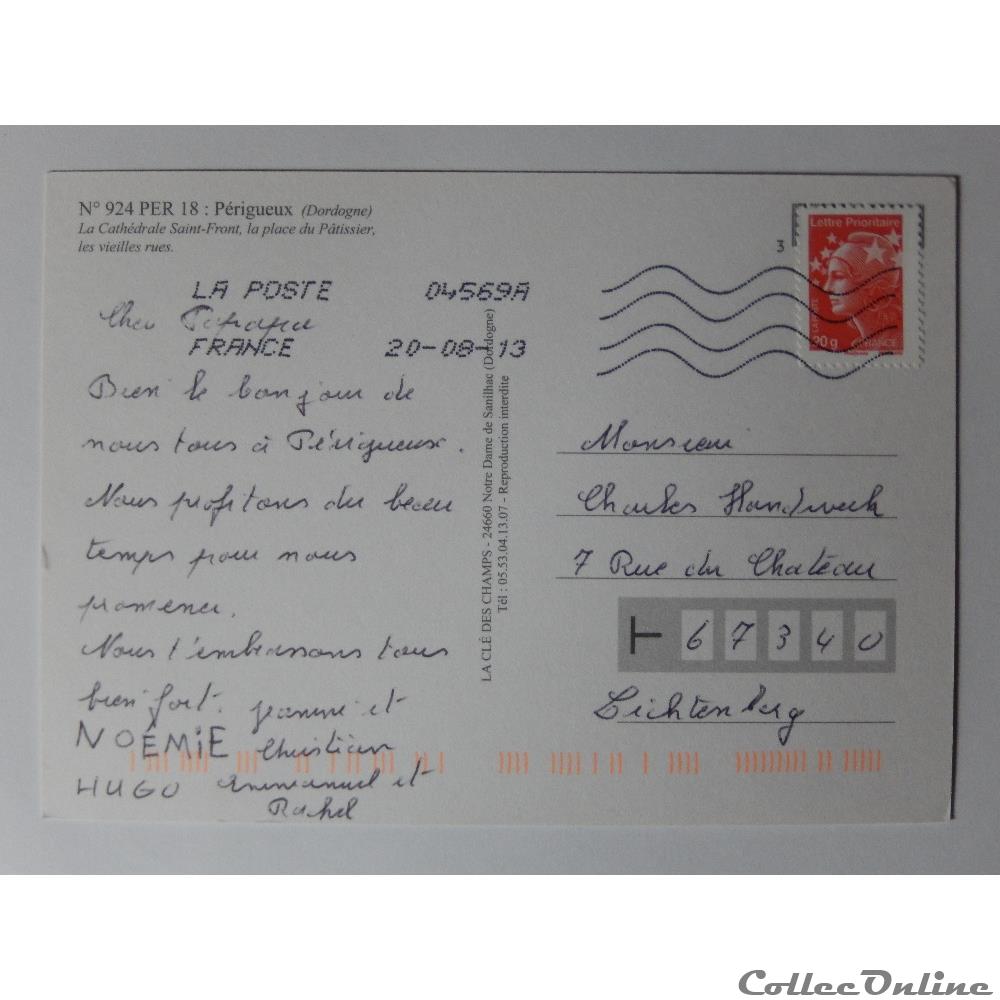 N° 924 PER 18 : Périgueux (Dordogne)
La Cathédrale Saint-Front, la place du Pâtissier,
les vieilles rues.
LA POSTE 04569A
FRANCE 20-08-13
Cher Papapa
Bien le bonjour de
nous tous à Périgueux.
Nous profitons du beau
temps pour nous
promener.
Nous t'embrassons tous
bien fort. Jeannie et
NOÉMIE Christian
HUGO Emmanuel et
Rahel
LA CLÉ DES CHAMPS - 24660 Notre Dame de Sanilhac (Dordogne)
Tél : 05.53.04.13.07 - Reproduction interdite
3
Lettre Prioritaire
LA POSTE
20g
FRANCE
Monsieur
Charles Handwerk
7 Rue du Chateau
67340
Lichtenberg
CollecOnline